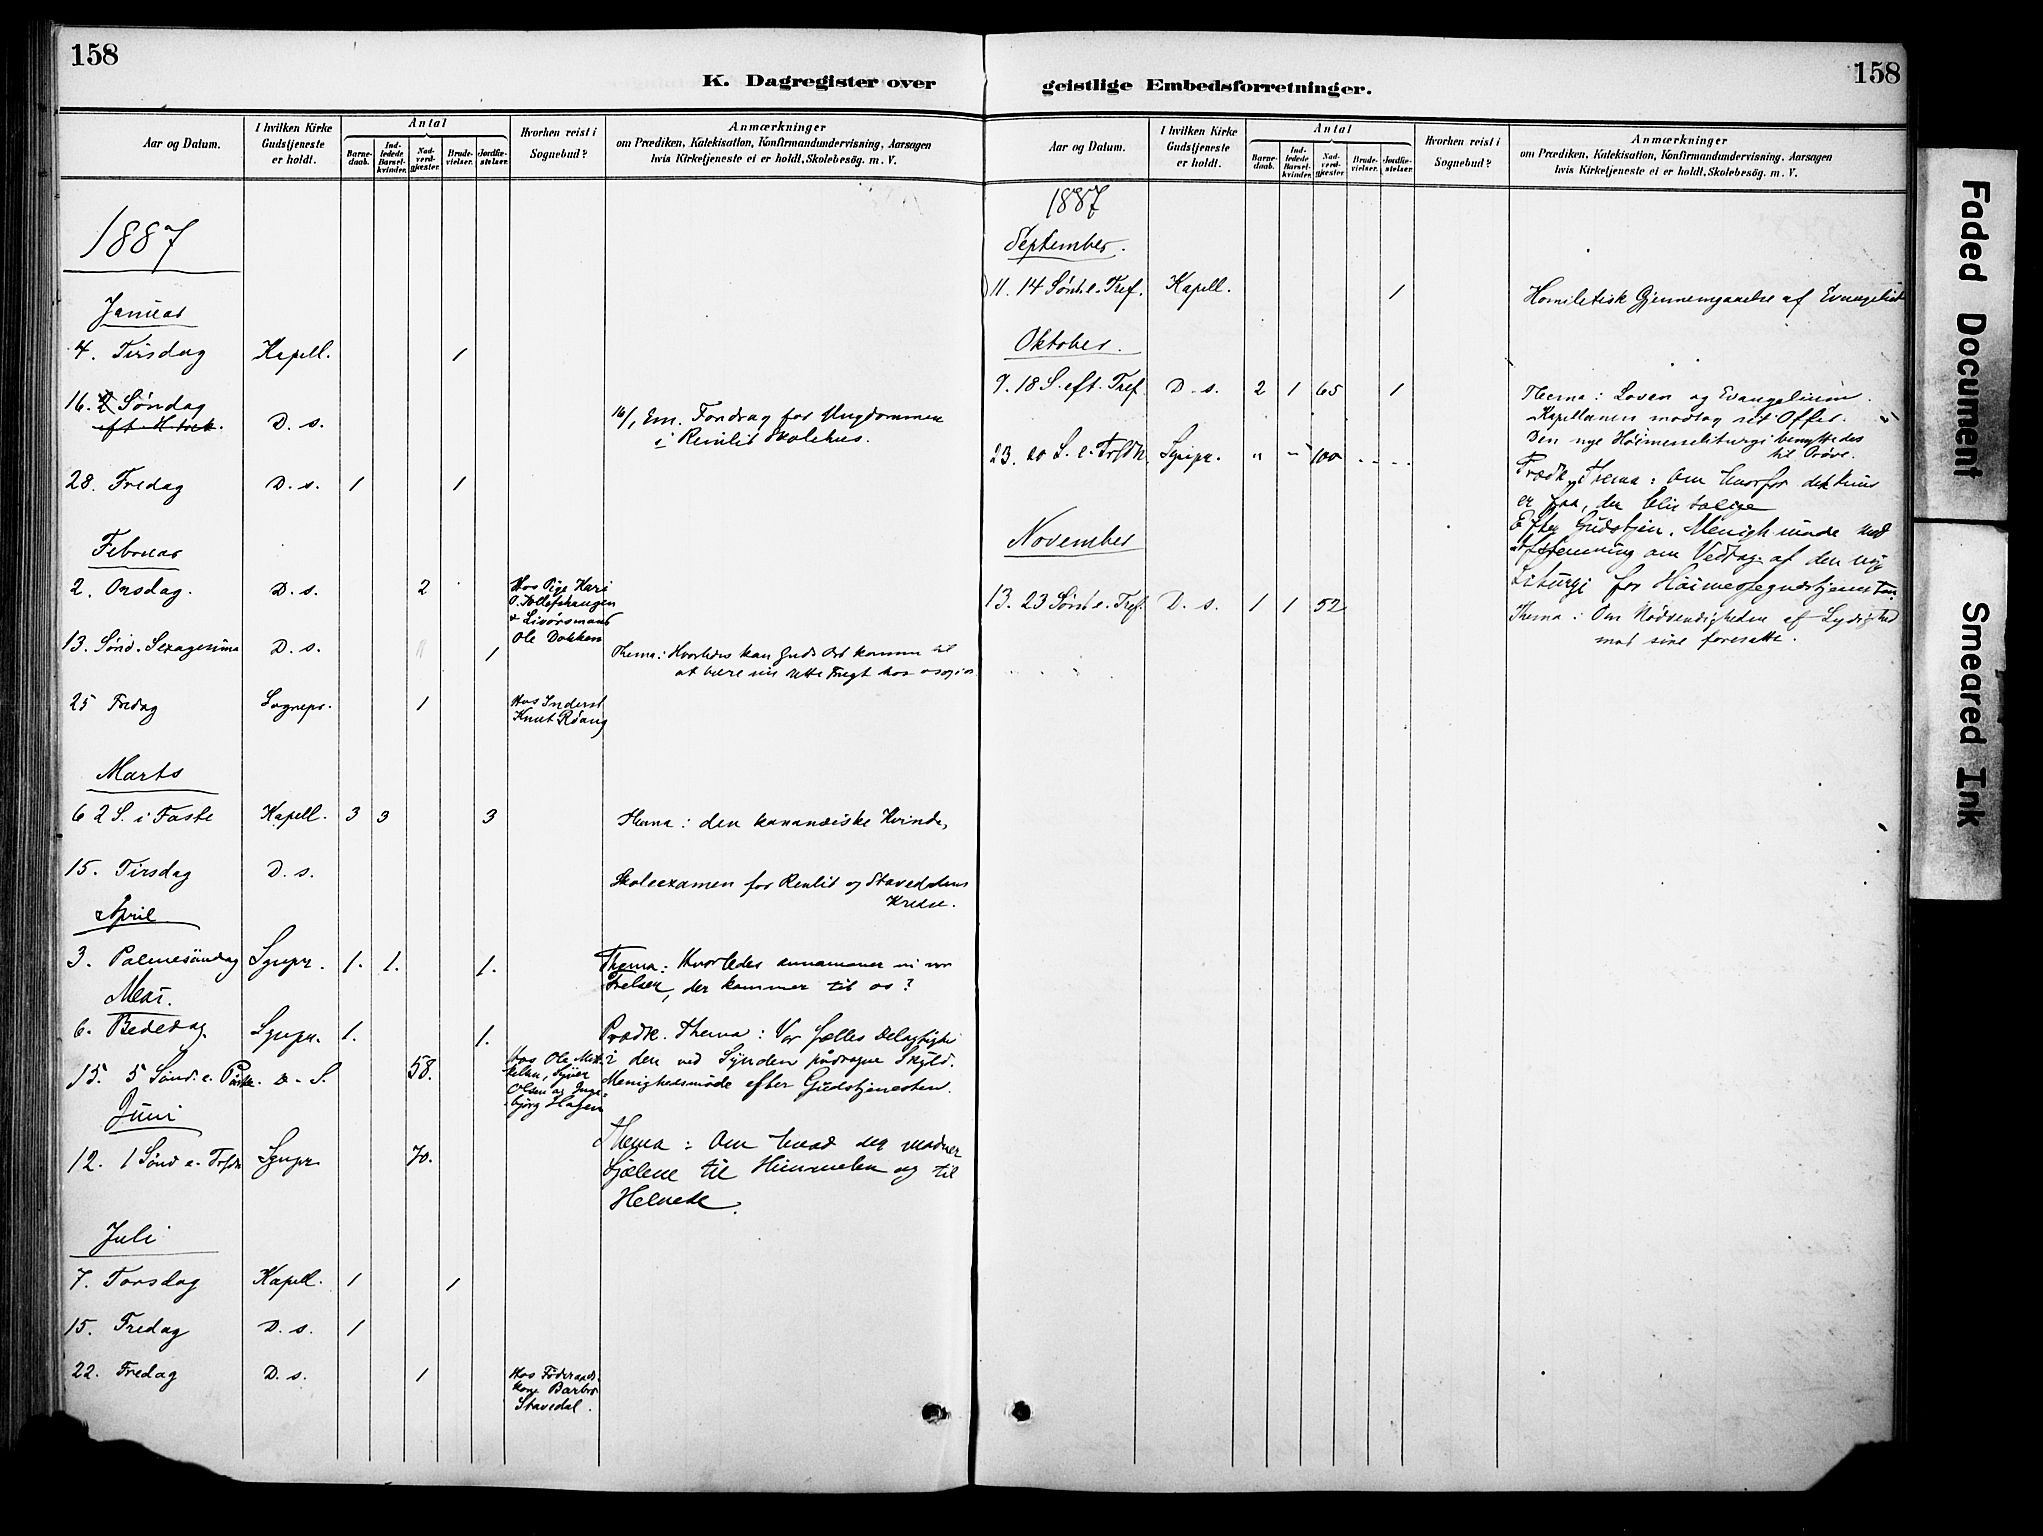 158
K. Dagregister over
Aar og Datum.
I hvilken Kirke Gudstjeneste er holdt.
Antal
Barnedaab.
Indledede Barselkvinder.
Nadverdgjester.
Brudevielser.
Jordfæstelser.
Hvorhen reist i Sognebud?
Anmærkninger
om Prædiken, Katekisation, Konfirmandundervisning, Aarsagen
hvis Kirketjeneste ei er holdt, Skolebesøg. m. V.
1887
Januar
4. Tirsdag Kapell. 1
16. Søndag D. s. 16/1 Em. Foredrag for Ungdommen
eft. H. trek. i Renlid Skolehus.
28. Fredag D. s. 1 1
Februar
2. Onsdag. D. s. 2 Hos Pige Kari
& Livørsmand
Ole Dokken
13. Sønd. Sexagesima D. s. 1 Thema: Hvorledes kan Guds Ord komme til
at bære sin rette Frugt hos os
25 Fredag Sognepr. 1 Hos Inderst
Knut Röang
Marts
6 2 S. i Faste Kapell. 3 3 3 Thema: den kananæiske Kvinde,
15. Tirsdag D. s. Skoleexamen for Renlid og Stavedalens
Kredse.
April
3. Palmesöndag Sgnpr. 1. 1. 1. Thema: Hvorledes annammer vi vor
Frelser, der kommer til os?
Mai.
6. Bededag. Sgnpr. 1. 1. Prædk. Thema: Vor fælles Delagtighe
i den ved Synden pådragne Skyld.
15. 5 Sönd. e. Påske. D. S. 58. Hos Ole
Olsen og Inge
björg Hagen
Menighedsmöde efter Gudstjenesten.
Juni
12. 1 Sönd e. Trfdh Sgnpr 70. Thema: Om hvad der modner
Sjælene til Himmelen og til
Helvede.
Juli
7. Torsdag Kapell. 1 1
15. Fredag D. s. 1
22. Fredag D. s. 1 Hos Föderaads
kone Barbro
Stavedal.
158
geistlige Embedsforretninger.
Aar og Datum.
I hvilken Kirke Gudstjeneste er holdt.
Antal
Barnedaab.
Indledede Barselkvinder.
Nadverdgjester.
Brudevielser.
Jordfæstelser.
Hvorhen reist i Sognebud?
Anmærkninger
om Prædiken, Katekisation, Konfirmandundervisning, Aarsagen
hvis Kirketjeneste ei er holdt, Skolebesøg. m. V.
1887
September.
11. 14 Sønd. e. Tref. Kapell. 1 Homiletisk Gjennemgaaelse af Evangeliet
Oktober.
9. 18 S. eft. Tref D. s. 2 1 65 1 Thema: Loven og Evangelium.
Kapellanen modtog sit Offer.
Den nye Höimesseliturgi benyttedes
til Prøve.
23. 20 S. e. Trfdh. Sgnpr. " " 100 Prædk. Thema: Om hvorfor det kun
er faa, der blir salige
Efter Gudstjen. Menigh.möde med
Afstemning om Vedtag. af den nye
Liturgi for Höimessegudstjenesten.
November
13. 23 Sønd. e. Tref. D. s. 1 1 52 Thema: Om Nödvendigheden af Lydighed
mod sine foresatte.
Faded Document
Smeared Ink